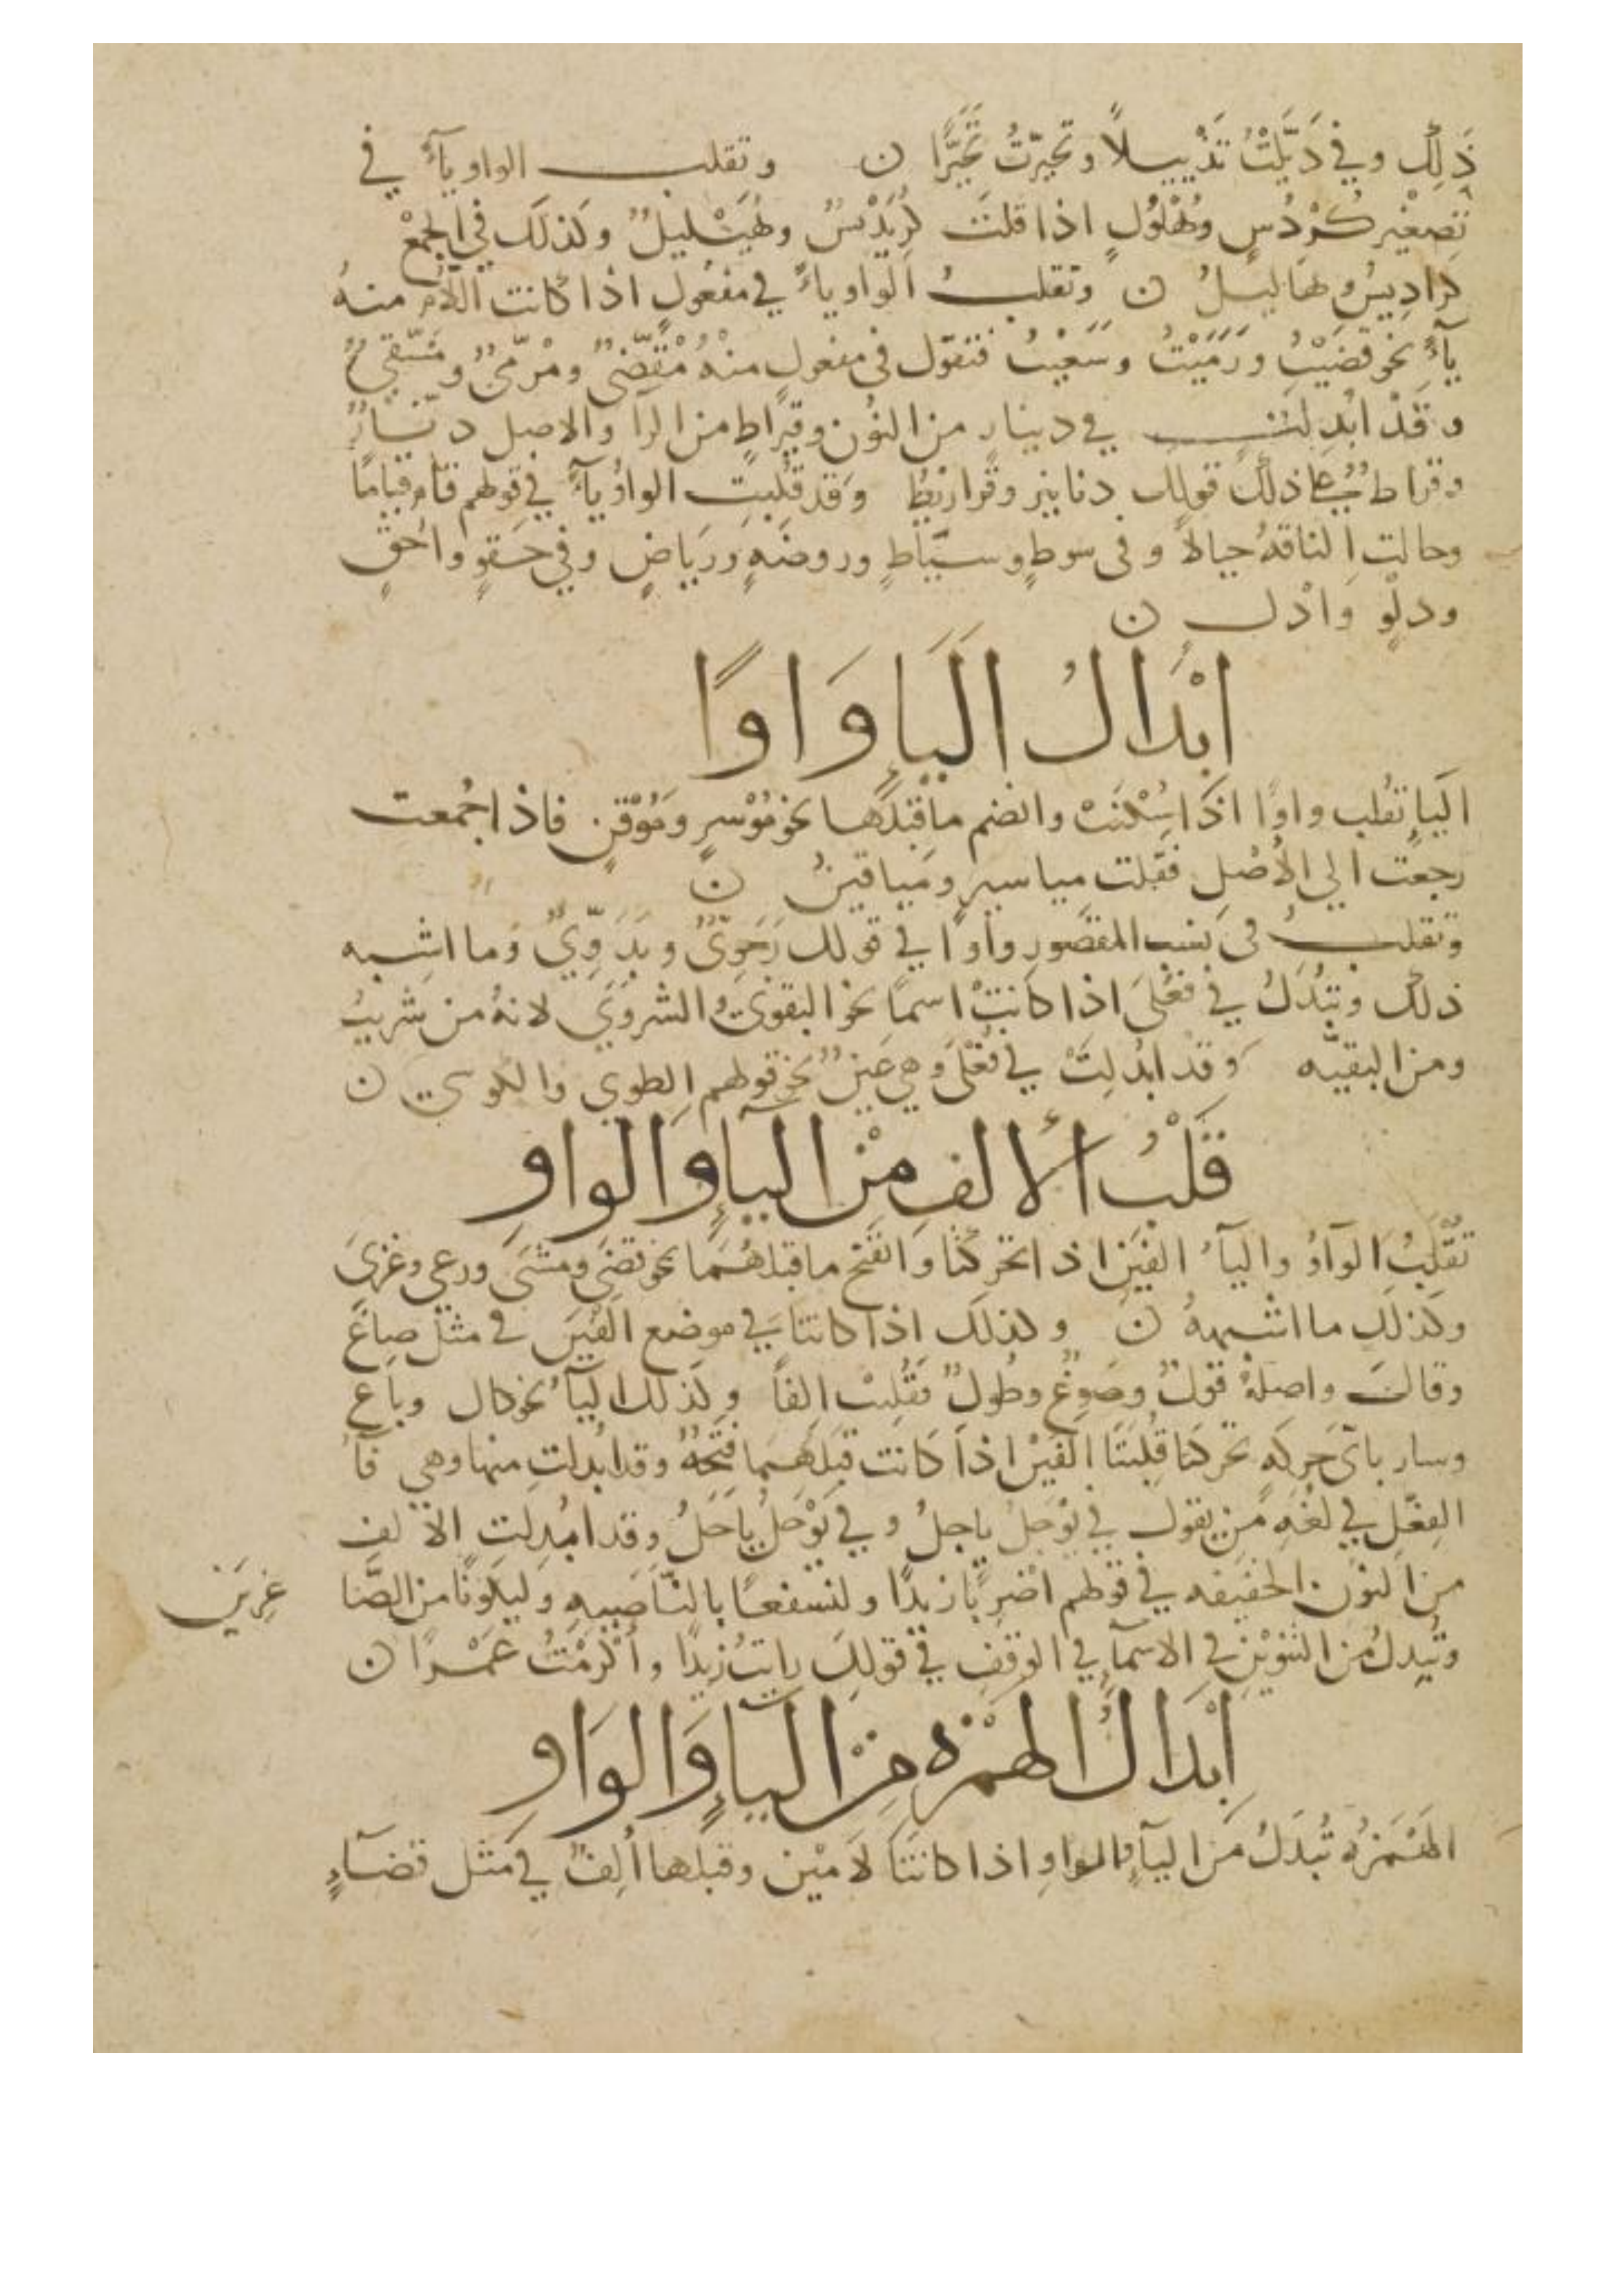 ذَلِكَ وفي ذَيَّلْتُ تَذْييلاً وتحيرّتُ تَحَيُّرًا ن وتقلب الواو يآءً في
تصغير كُرْدُسٍ وبُهْلُولٍ اذا قلتَ كُرَيْدِيسٌ وبُهَيْليلٌ وكذلك في الجمْع
كرادِيسُ وبهاليلُ ن وتقلبُ الواو ياءً في مفعُولٍ اذا كانت اللام منهُ
يآءً نحو قضَيْتُ ورَمَيْتُ وسَعَيْتُ فتقول في مفعولٍ منْهُ مَقْضِىٌّ ومَرْمىٌّ
وقَدْ ابْدِلَت في دينارٍ من النوُن وقيرَاطٍ من الرآ والاصل دنّارٌ
وقرّاط على ذلك قولك دنانير وقراريطُ وقد قُلبتِ الواوُ يآءً في قولهم قام قياماً
وحالت الناقهُ حيالاً وفى سوطٍ وسيَاطٍ وروضهٍ وريَاضٍ وفي حَقوٍ واَحْقٍ
ودلْوٍ وَادْلٍ ن
ابْدَالُ اليَآءِ وَاوًا
اليَآءِ تقُلب واوًا اذَا سُكْنَتْ وانضم ما قبْلهَا نحو مُوْسرٍ ومُوْقنٍ فاذا جُمعت
رجعَت الي الأَصْلِ فقلت مياسير ومَياقينُ ن
وتقلبُ فى نسب المقصُورِ واوًا في قولك رَحَوِىٌّ وبَدَوِيٌّ وما اشبه
ذلك وتبْدَلُ في فَعْلَى اذا كانتْ اسماً نحو البقوىَ والشروَي لانهُ من شريتُ
ومن البقيّه وقد ابْدلِتَْ في فُعْلَى وَهي عَينٌ نحو قولهم الطوبي والكوسي ن
قَلْبُ الألفِ مِنْ اليَآءِ وَالواوِ
تقُلَبُ الوَاوُ واليآءُ الفَيْنِ اذا تحركتَا وَانفَتح ما قبلهُمَا نحو قضَي ومشَىَ ورعى وغزيَ
وكذلِك ما اشبههُ ن وكذلك اذا كانتا في موضع العَيْنِ في مثل صاغَ
وقالَ واصلهُ قولَ وصَوغَ وطولَ فقُلبتْ الفاً وكذلك اليآءُ نحو كال وباع
وسار باىّ حَركهٍ تحركتا قُلِبَتَا الفَيْنِ اذَا كانت قبْلَهُمَا فتَحَةٌ وقد ابْدلتِ منها وهي فآءُ
الفِعْلِ في لغَهِ مَن يقول في يَوْجَلُ ياجلُ وفي يَوْحَلُ يَاحَلُ وقد ابْدِلت الالف
من النون الخفيفه في قولهم اضربَا زيدًا ولنسْفعًا بالنّاَصيهِ وليكَوناً من الصَّا غِريَن
وتُبْدِلُ من التَنوْينِ في الاسمآءِ في الوقفِ في قولِكَ رايتُ زَيدًا واكرَمْتُ عَمْرًا ن
اِبْدَالُ الهَمْزهِ مِنْ اليَآءِ وَالوَاوِ
الهَمْزهُ تُبْدَلُ مَن اليآءِ والواوِ اذا كانتَا لاَمَيْنِ وقبْلها ألِفٌ في مثل قضَآءٍ